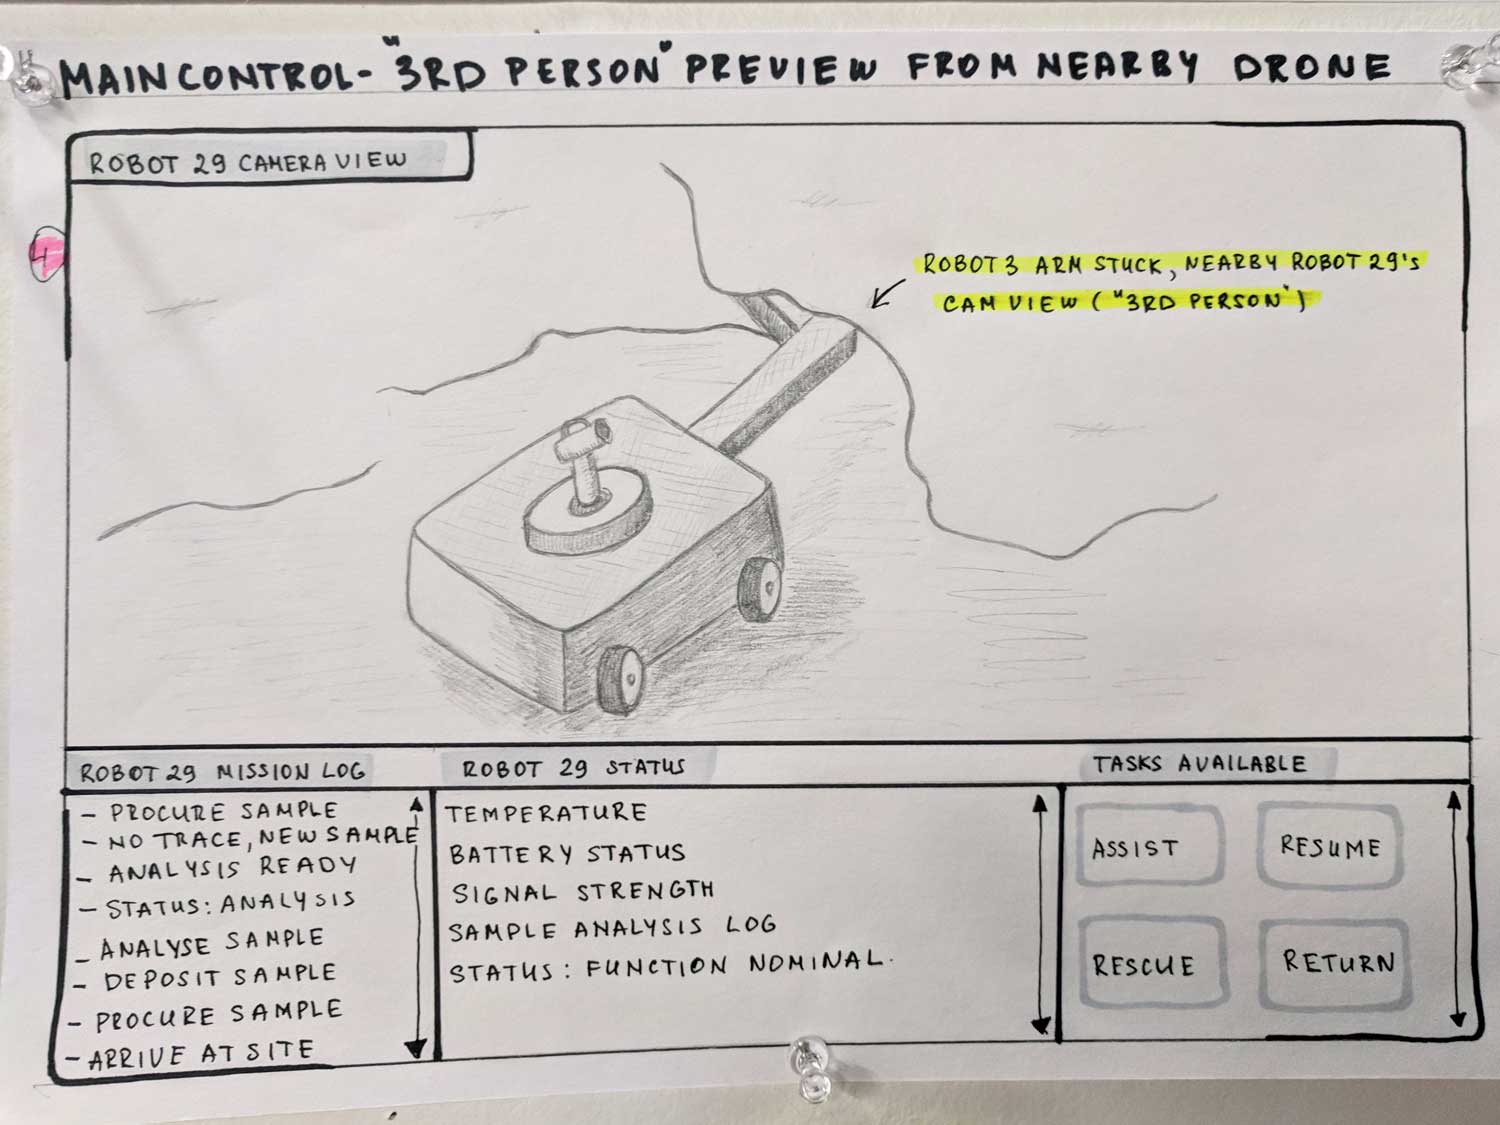 MAIN CONTROL - "3RD PERSON" PREVIEW FROM NEARBY DRONE
ROBOT 29 CAMERA VIEW
4
ROBOT 3 ARM STUCK, NEARBY ROBOT 29's
CAM VIEW ("3RD PERSON")
ROBOT 29 MISSION LOG
- PROCURE SAMPLE
- NO TRACE, NEW SAMPLE
- ANALYSIS READY
- STATUS: ANALYSIS
- ANALYSE SAMPLE
- DEPOSIT SAMPLE
- PROCURE SAMPLE
- ARRIVE AT SITE
ROBOT 29 STATUS
TEMPERATURE
BATTERY STATUS
SIGNAL STRENGTH
SAMPLE ANALYSIS LOG
STATUS: FUNCTION NOMINAL.
TASKS AVAILABLE
ASSIST
RESUME
RESCUE
RETURN